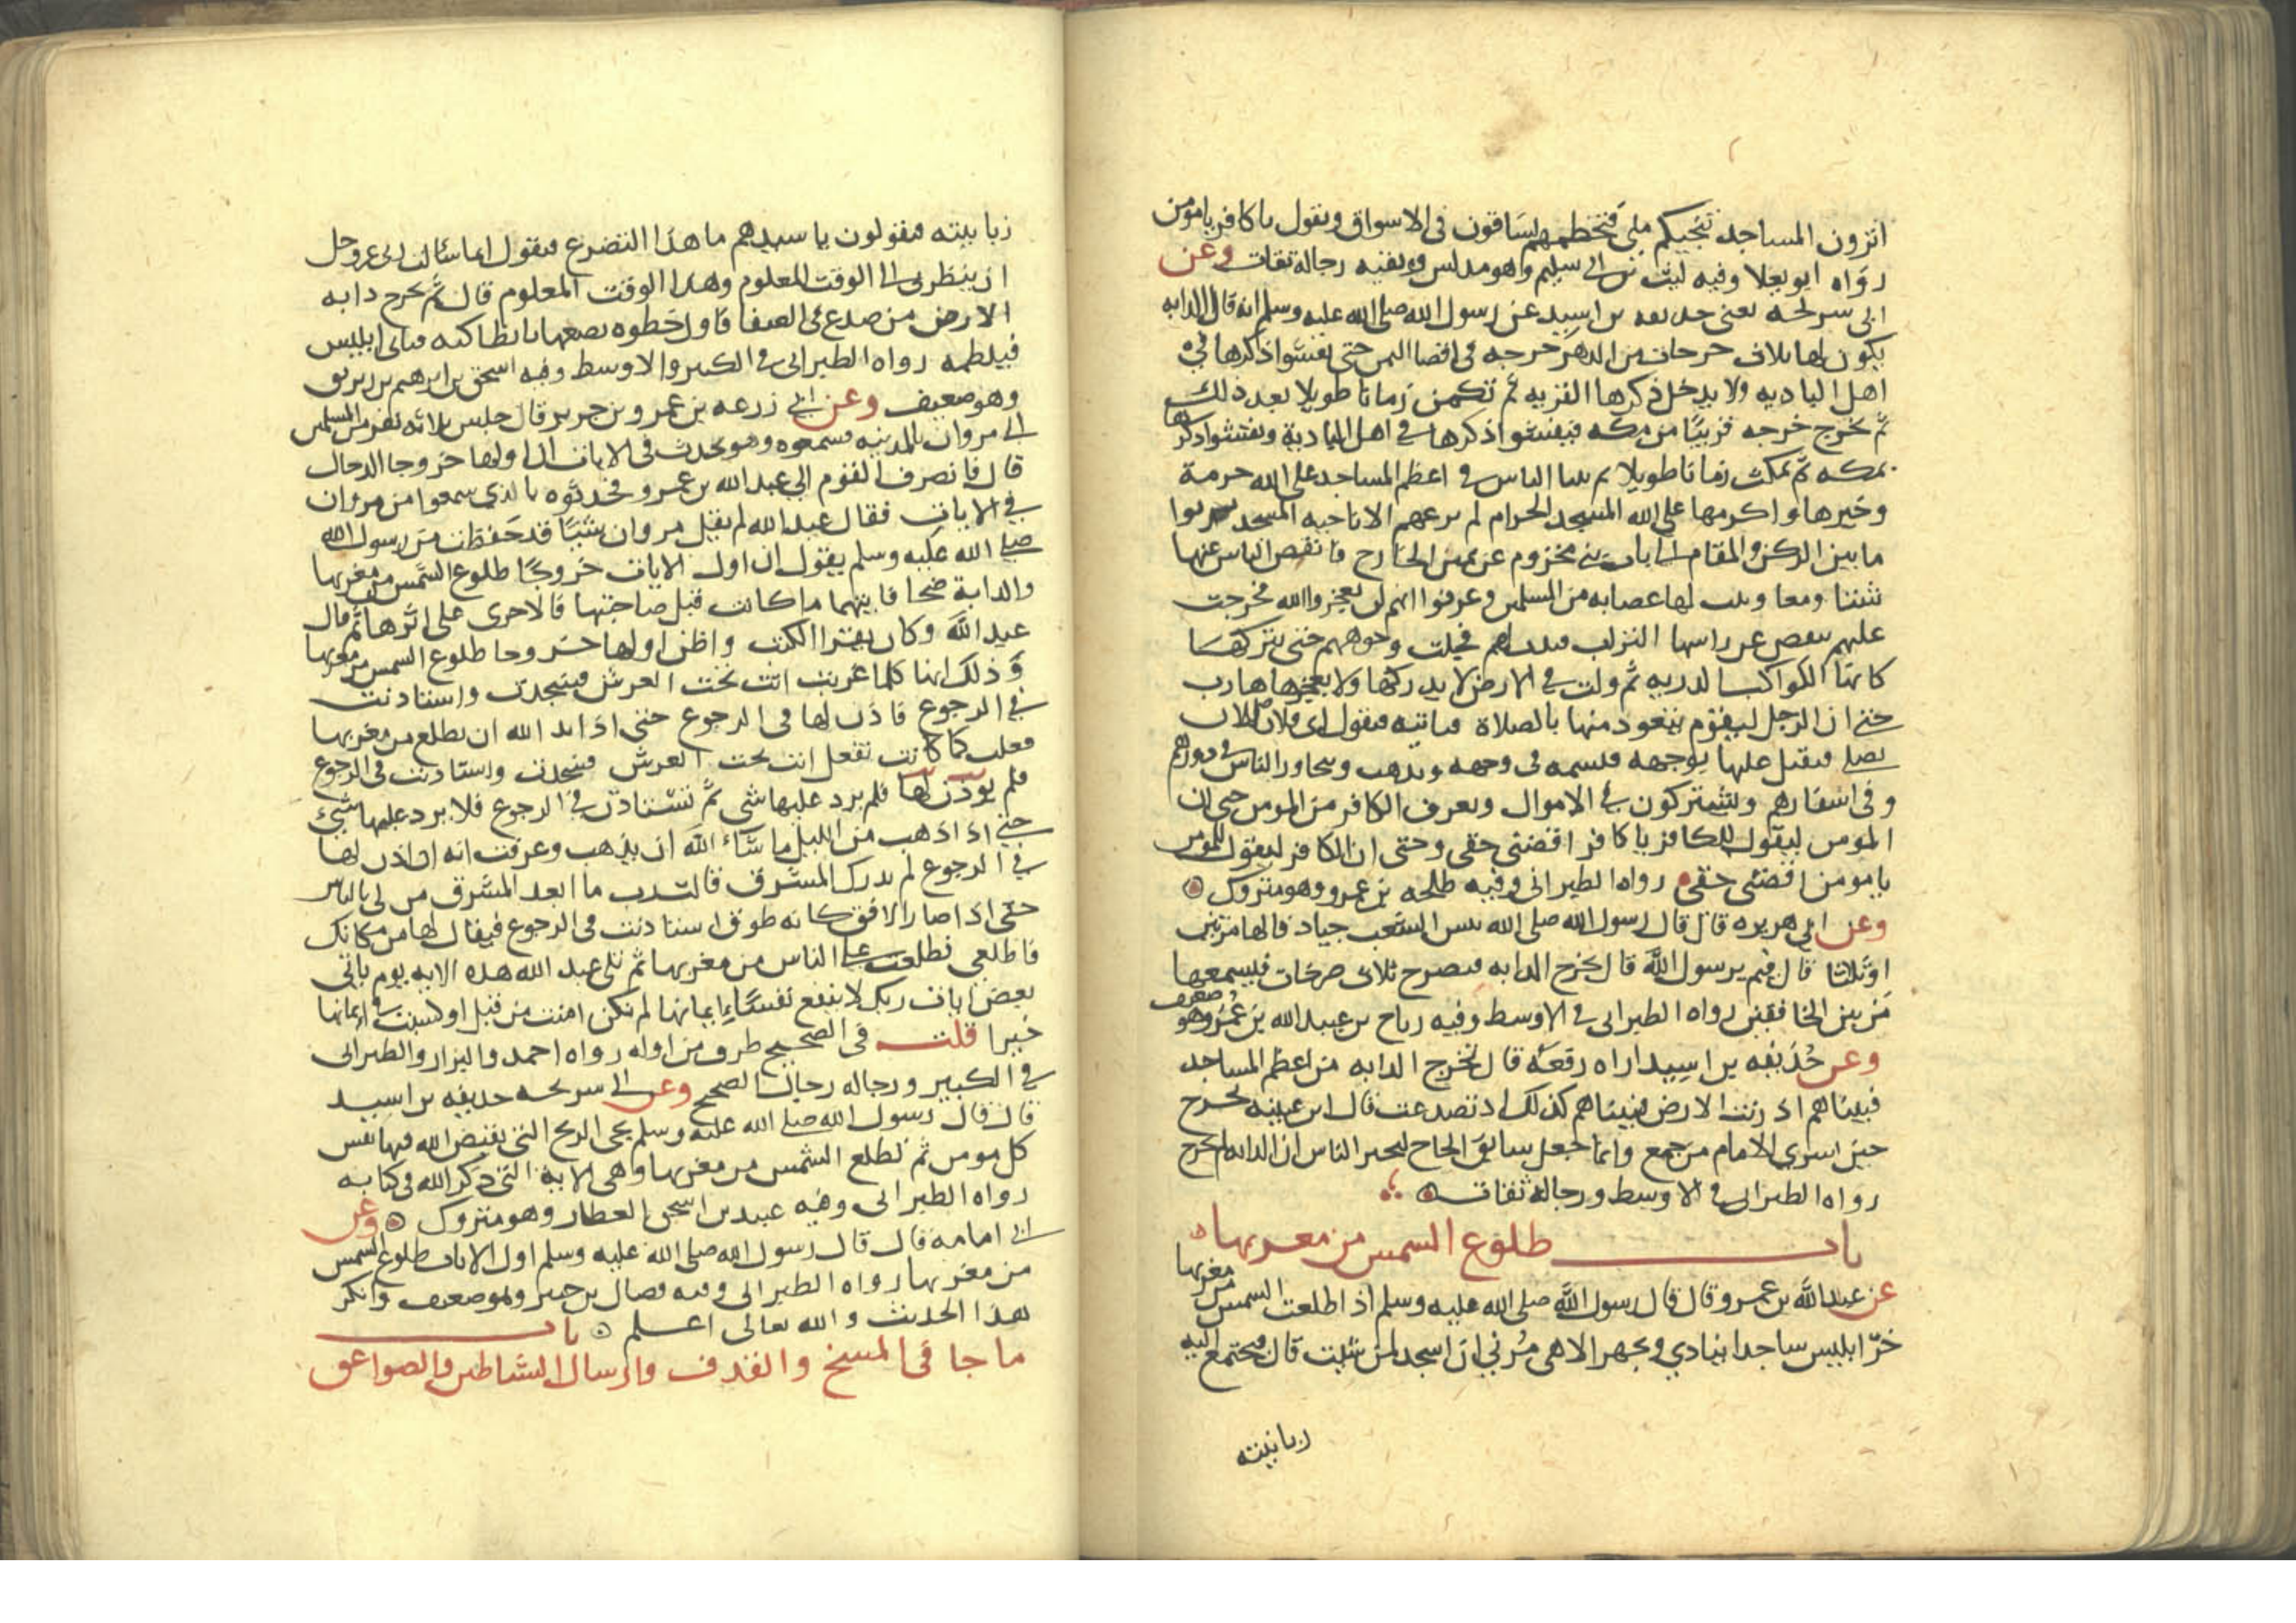 اترون المساجد تنجيكم مني فتخطمهم يساقون في الاسواق ويقول يا كافر يا مومن
رواه ابو يعلا وفيه ليث بن ابي سليم وهو مدلس وبقيه رجاله ثقات وعن
ابي سريحه يعني حذيفه بن اسيد عن رسول الله صلى الله عليه وسلم انه قال الدابه
يكون لها ثلاث خرجات من الدهر خرجه في اقصا اليمن حتى يفشوا ذكرها في
اهل الباديه ولا يدخل ذكرها القريه ثم تكمن زمانا طويلا بعد ذلك
ثم تخرج خرجه قريبا من مكه فيفشوا ذكرها في اهل البادية ويفشوا ذكرها
بمكه ثم تمكث زمانا طويلا ثم بينا الناس في اعظم المساجد على الله حرمة
وخيرها واكرمها على الله المسجد الحرام لم يرعهم الا ناحيه المسجد
ما بين الركن والمقام الى باب بني مخزوم عن يمين الخارج فانفض الناس عنها
شتتا ومعا وثبت لها عصابه من المسلمين وعرفوا انهم لن يعجزوا الله فخرجت
عليهم تنفض عن راسها التراب فبدات بهم فجلت وجوههم حتى تتركها
كانها الكواكب الدريه ثم ولت في الارض لا يدركها ولا يعجزها هارب
حتى ان الرجل ليقوم يتعوذ منها بالصلاة فتاتيه فيقول اي فلان الان
تصلي فيقبل عليها بوجهه فتسمه في وجهه ويذهب ويتحاور الناس في دورهم
وفي اسفارهم ويشتركون في الاموال ويعرف الكافر من المومن حتى ان
المومن ليقول للكافر يا كافر اقضني حقي وحتى ان الكافر ليقول للمومن
يا مومن اقضني حقي رواه الطبراني وفيه طلحه بن عمرو وهو متروك
وعن ابي هريره قال قال رسول الله صلى الله بئس الشعب جياد قالها مرتين
او ثلاثا قال فيم يرسول الله قال تخرج الدابه فتصرخ ثلاث صرخات فيسمعها
من بين الخافقين رواه الطبراني في الاوسط وفيه رباح بن عبيد الله بن عمر وهو ضعيف
وعن حذيفه بن اسيد اراه رفعه قال تخرج الدابه من اعظم المساجد
فبيناهم اذ رنت الارض فبيناهم كذلك اذ تصدعت قال ابن عيينه تخرج
حين اسري الامام من جمع وانما جعل سابق الحاج ليخبر الناس ان الدابه لم تخرج
رواه الطبراني في الاوسط ورجاله ثقات
باب طلوع الشمس من مغربها
عن عبد الله بن عمرو قال قال رسول الله صلى الله عليه وسلم اذا طلعت الشمس من مغربها
خر ابليس ساجدا ينادي ويجهر الاهي مرني ان اسجد لمن شئت قال فيجتمع اليه
زبانيته
زبانيته فيقولون يا سيدهم ما هذا التضرع فيقول انما سالت ربي عز وجل
ان ينظرني الى الوقت المعلوم وهذا الوقت المعلوم قال ثم تخرج دابه
الارض من صدع في الصفا فاول خطوه تضعها بانطاكيه فتاتي ابليس
فيلطمه رواه الطبراني في الكبير والاوسط وفيه اسحق بن ابرهيم بن زبريق
وهو ضعيف وعن ابي زرعه بن عمرو بن جرير قال جلس ثلاثه نفر من المسلمين
الى مروان بالمدينه فسمعوه وهو يحدث في الايات ان اولها خروجا الدجال
قال فانصرف القوم الى عبد الله بن عمرو فحدثوه بالذي سمعوا من مروان
في الايات فقال عبد الله لم يقل مروان شيئا قد حفظت من رسول الله
صلى الله عليه وسلم يقول ان اول الايات خروجا طلوع الشمس من مغربها
والدابة ضحا فايتهما ما كانت قبل صاحبتها فالاخرى على اثرها ثم قال
عبد الله وكان يقرا الكتب واظن اولها خروجا طلوع الشمس من مغربها
وذلك انها كلما غربت اتت تحت العرش فسجدت واستاذنت
في الرجوع فاذن لها في الرجوع حتى اذا بدا لله ان تطلع من مغربها
فعلت كما كانت تفعل اتت تحت العرش فسجدت واستاذنت في الرجوع
فلم يوذن لها فلم يرد عليها شي ثم تستاذن في الرجوع فلا يرد عليها شيئ
حتى اذا ذهب من الليل ما شاء الله ان يذهب وعرفت انه ان اذن لها
في الرجوع لم تدرك المشرق قالت رب ما ابعد المشرق من لي بالناس
حتى اذا صار الافق كانه طوق استاذنت في الرجوع فيقال لها من مكانك
فاطلعي فطلعت على الناس من مغربها ثم تلى عبد الله هذه الايه يوم ياتي
بعض ايات ربك لا ينفع نفسا ايمانها لم تكن امنت من قبل او كسبت في ايمانها
خيرا قلت في الصحيح طرف من اوله رواه احمد والبزار والطبراني
في الكبير ورجاله رجال الصحيح وعن ابي سريحه حذيفه بن اسيد
قال قال رسول الله صلى الله عليه وسلم يجي الريح التي يقبض الله فيها نفس
كل مومن ثم تطلع الشمس من مغربها وهي الاية التي ذكر الله في كتابه
رواه الطبراني وفيه عبيد بن اسحق العطار وهو متروك وعن
ابي امامه قال قال رسول الله صلى الله عليه وسلم اول الايات طلوع الشمس
من مغربها رواه الطبراني وفيه فضال بن جبير وهو ضعيف وانكر
هذا الحديث والله تعالى اعلم باب
ما جا في المسخ والقذف وارسال الشياطين والصواعق